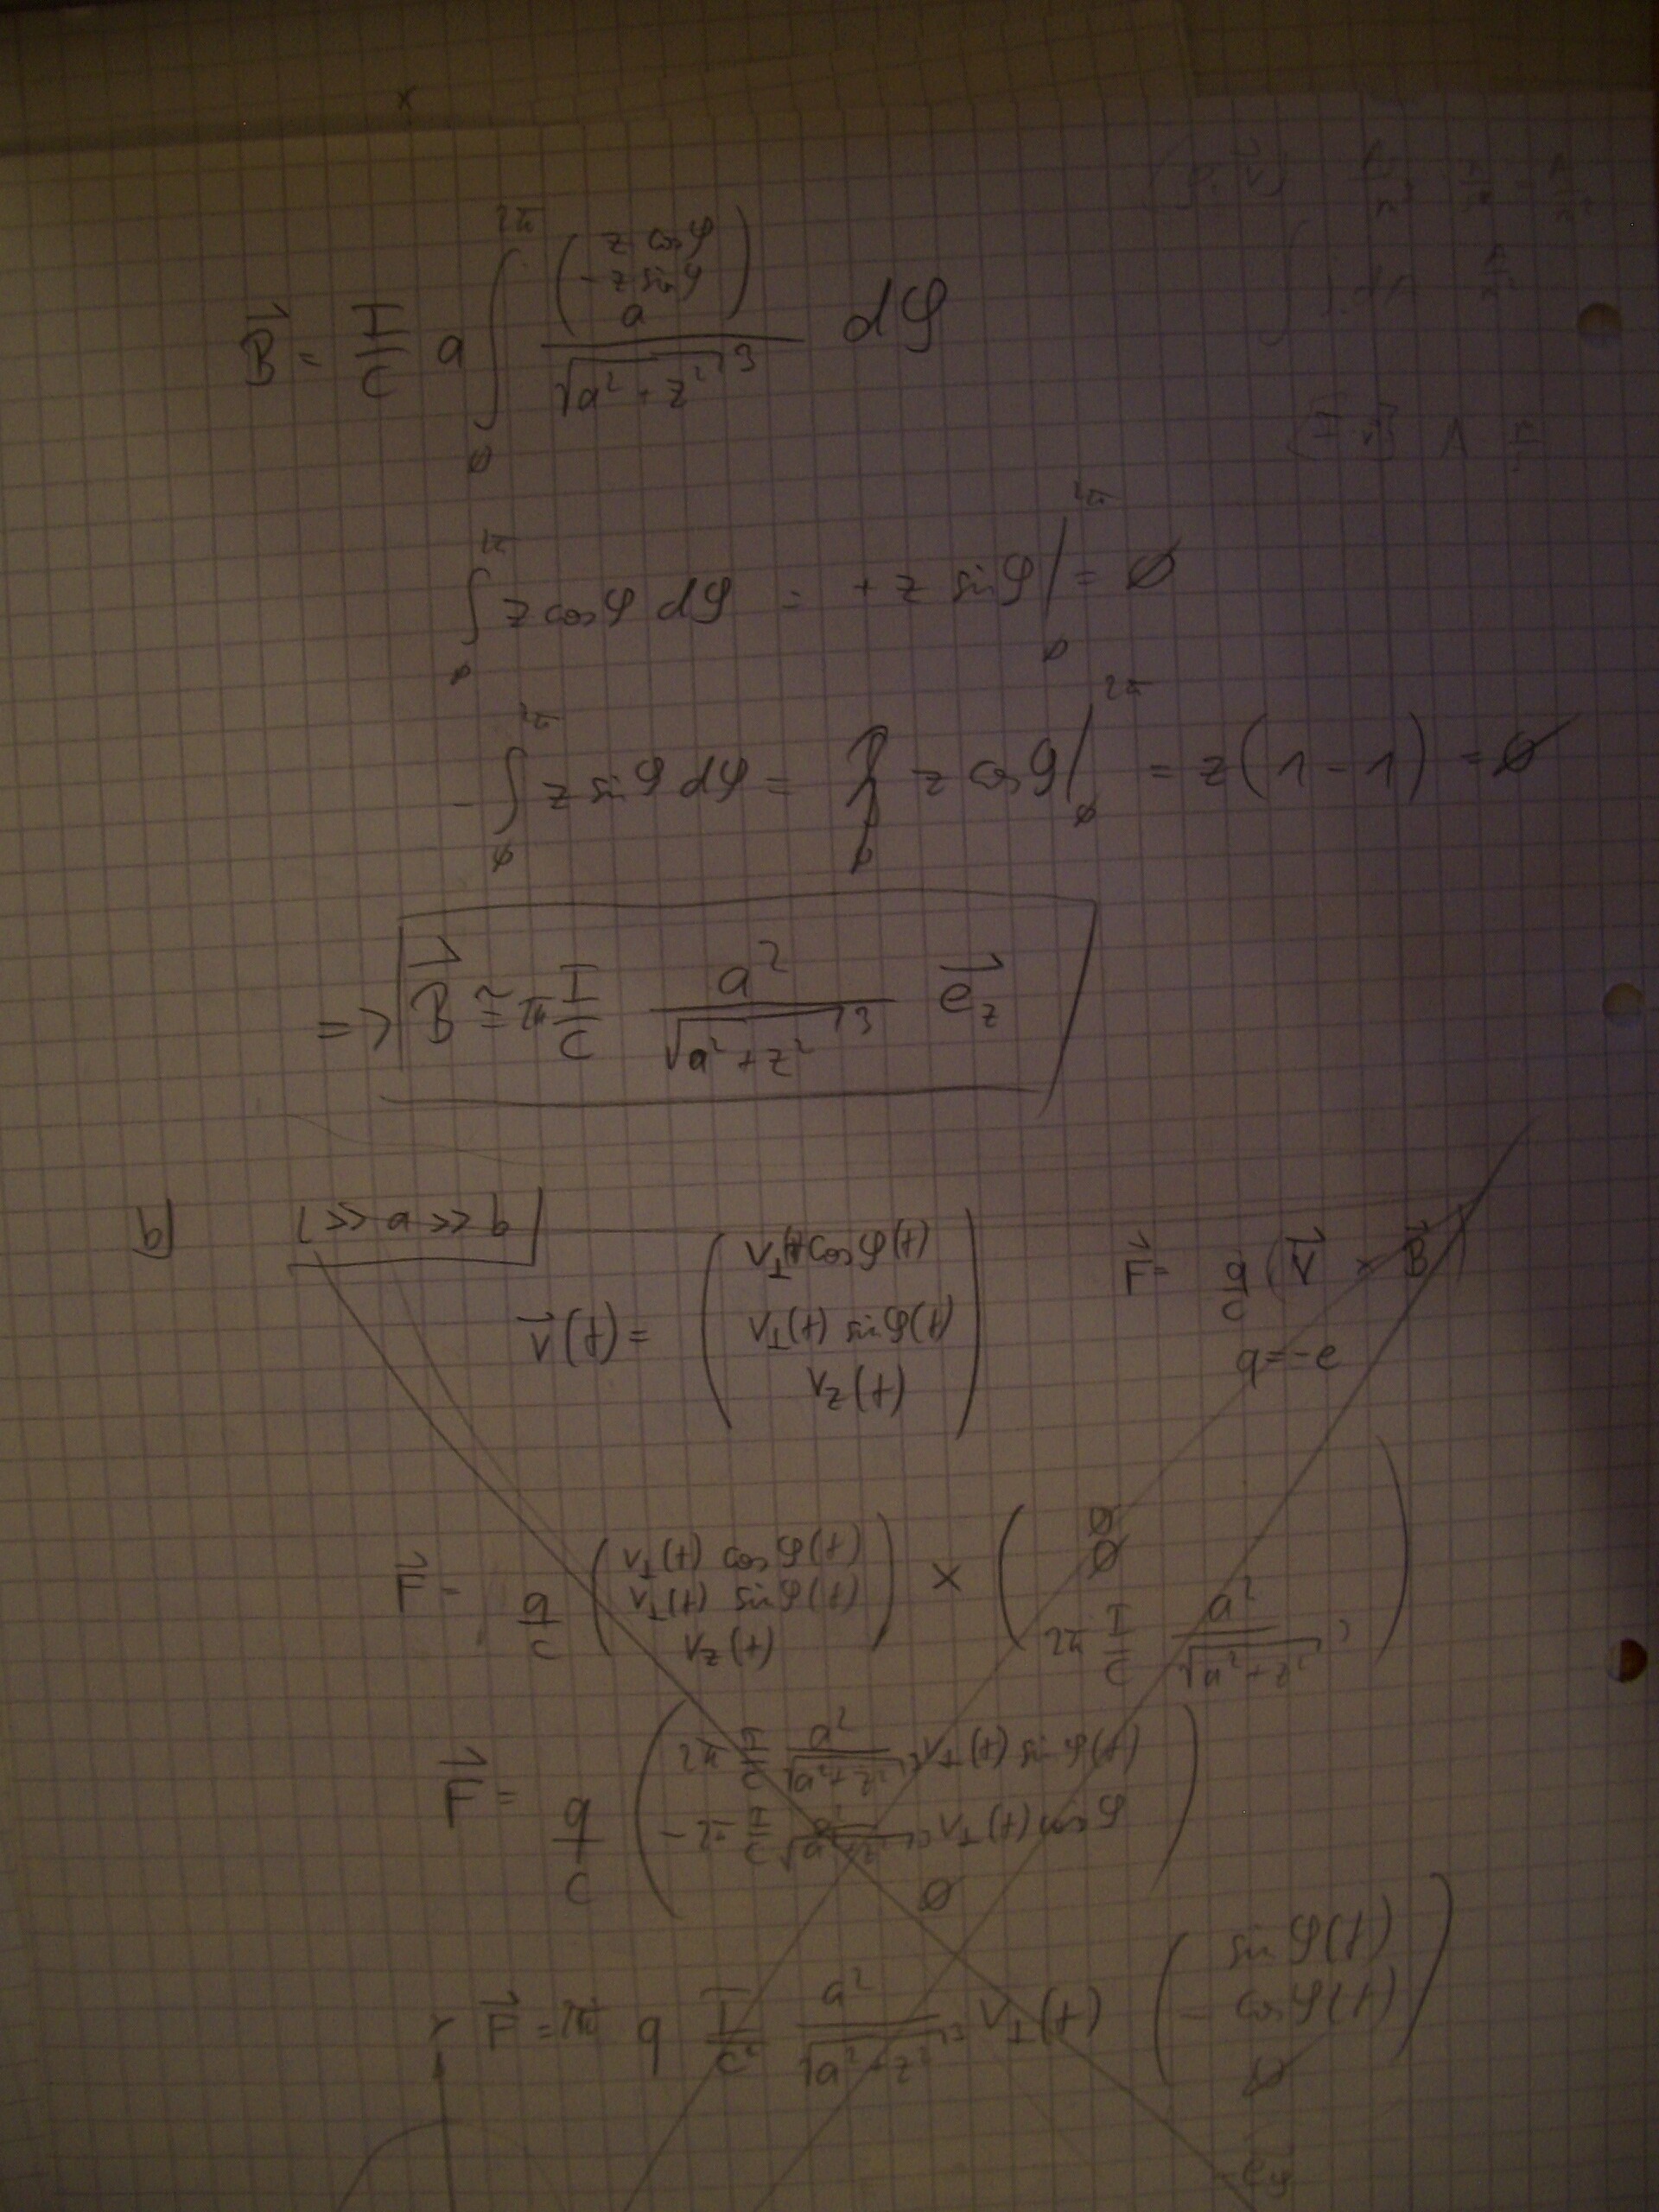 x
B⃗ = I/c a ∫_0^{2π} (z cosφ, -z sinφ, a) / √(a² + z²)³ dφ
∫_0^{2π} z cosφ dφ = + z sinφ |_0^{2π} = 0
- ∫_0^{2π} z sinφ dφ = z cosφ |_0^{2π} = z(1-1) = 0
=> B⃗ ≅ 2π I/c a²/√(a²+z²)³ e⃗_z
b) l >> a >> b
v⃗(t) = (v⊥(t) cosφ(t), v⊥(t) sinφ(t), v_z(t)) F⃗ = q/c (v⃗ × B⃗)
q = -e
F⃗ = q/c (v⊥(t) cosφ(t), v⊥(t) sinφ(t), v_z(t)) × (0, 0, 2π I/c a²/√(a²+z²)³)
F⃗ = q/c (2π I/c a²/√(a²+z²)³ v⊥(t) sinφ(t), -2π I/c a²/√(a²+z²)³ v⊥(t) cosφ, 0)
F⃗ = 2π q I/c² a²/√(a²+z²)³ v⊥(t) (sinφ(t), -cosφ(t), 0)
-e⃗φ